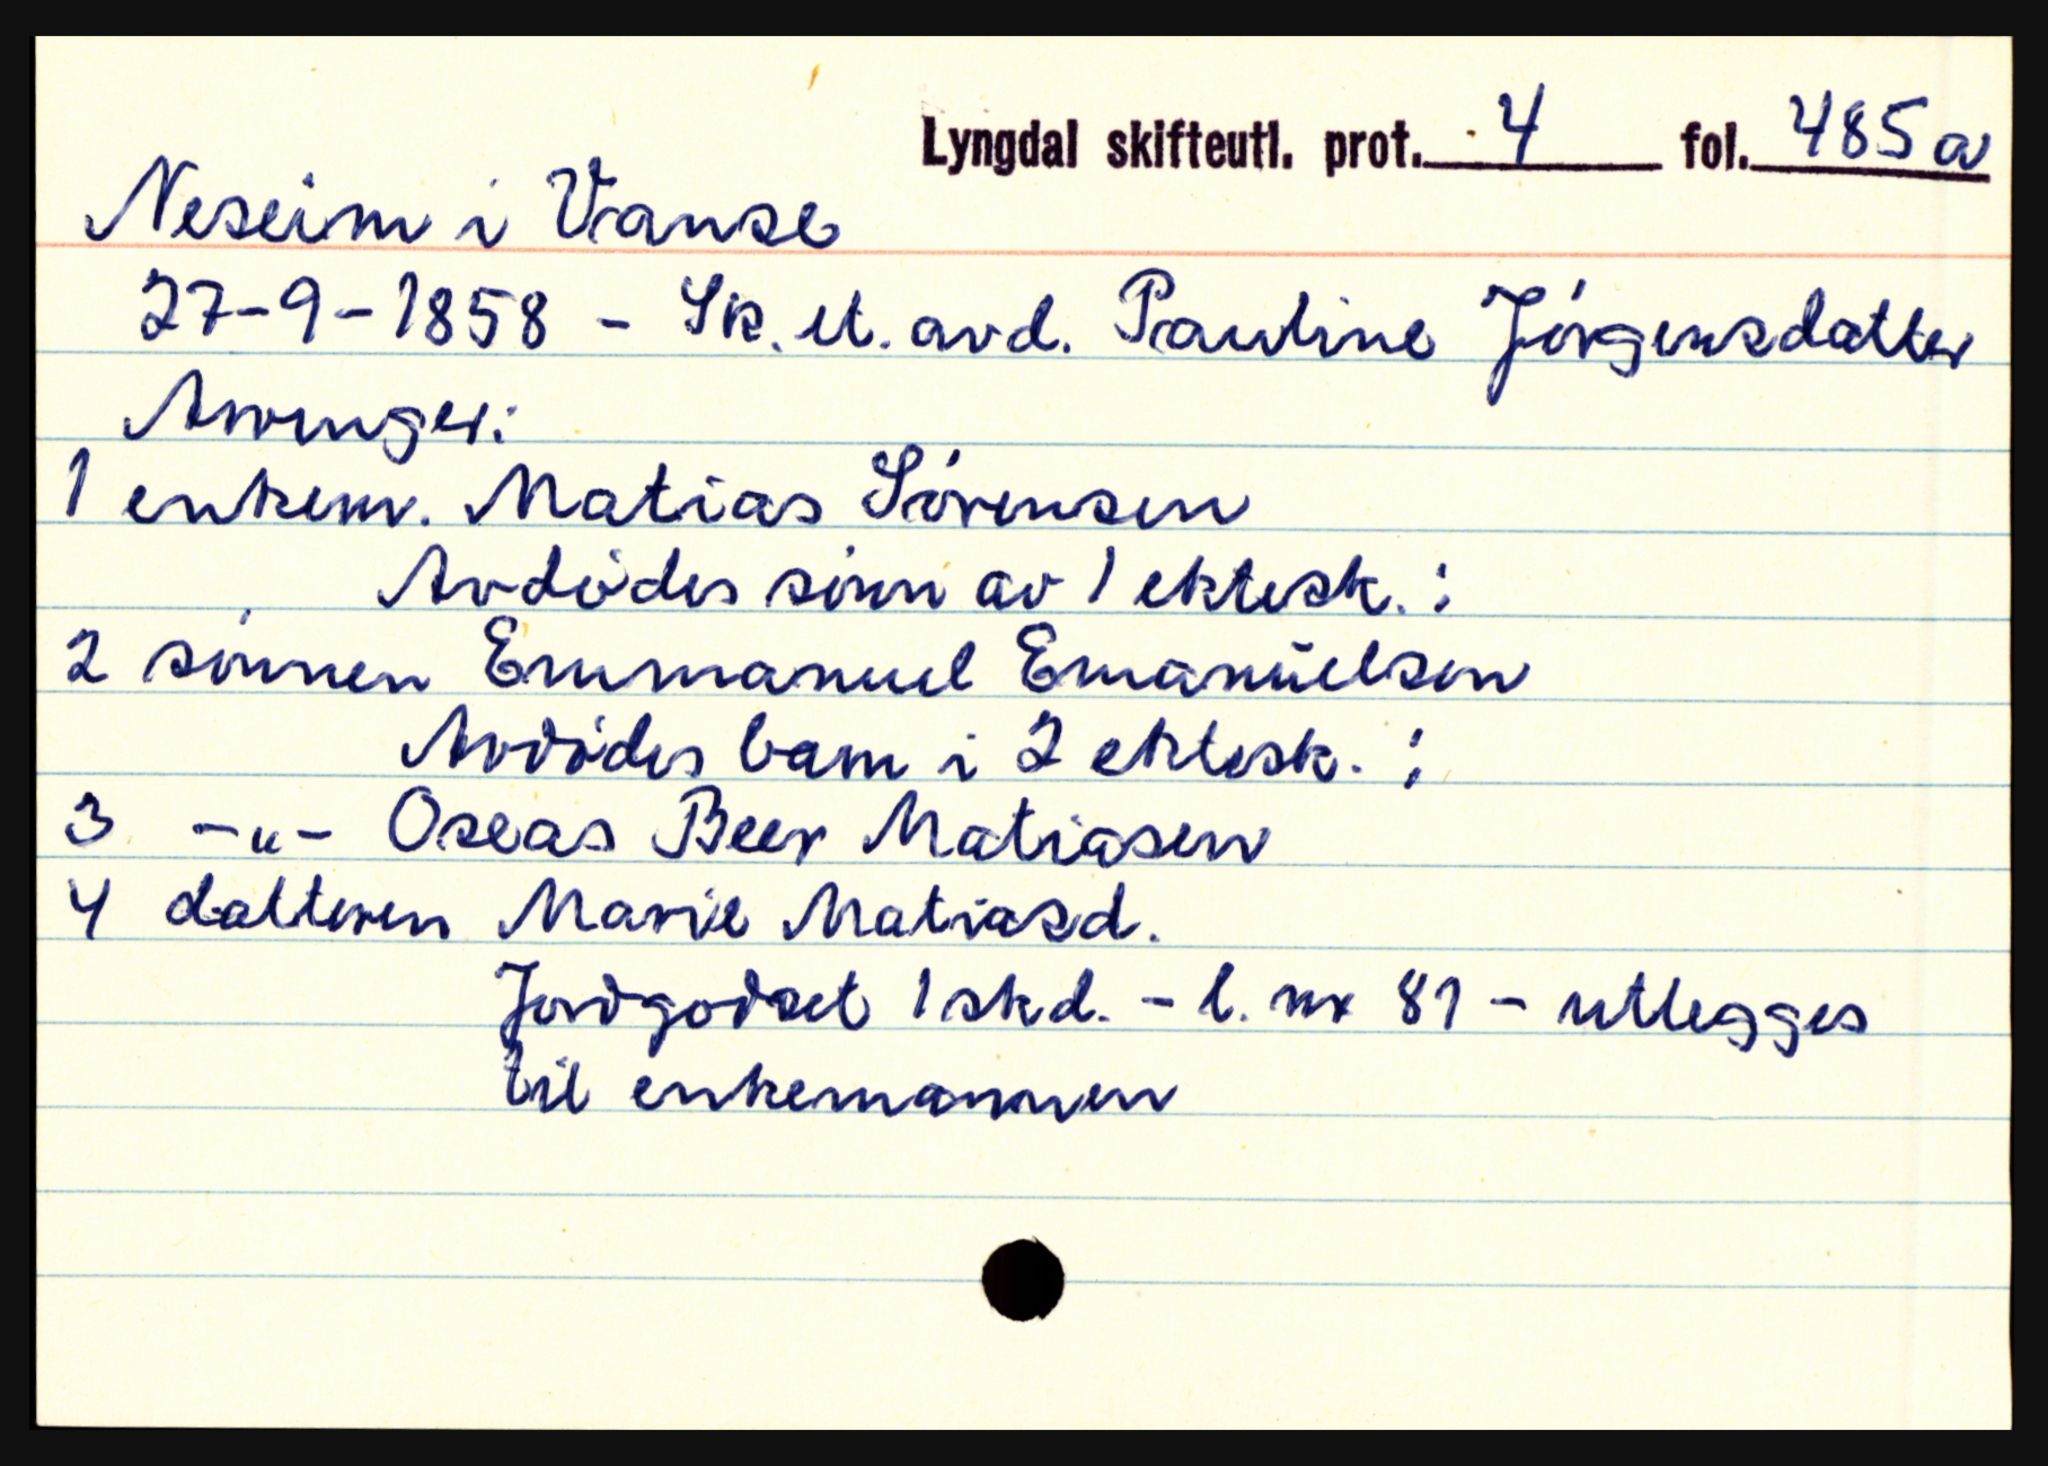 Lyngdal skifteutl. prot. 4 fol. 485a
Neseim i Vanse
27-9-1858 - Sk. et. avd. Pauline Jörgensdatter
Arvinger:
1 enkem. Matias Sörensen
Avdödes sönn av 1 ektesk. :
2 sönnen Emmanuel Emanuelsen
Avdödes barn i 2 ektesk. :
3 -"- Oseas Beer Matiasen
4 datteren Marie Matiasd.
Jordgodset 1 skd. - l. nr 81 - utlegges
til enkemannen